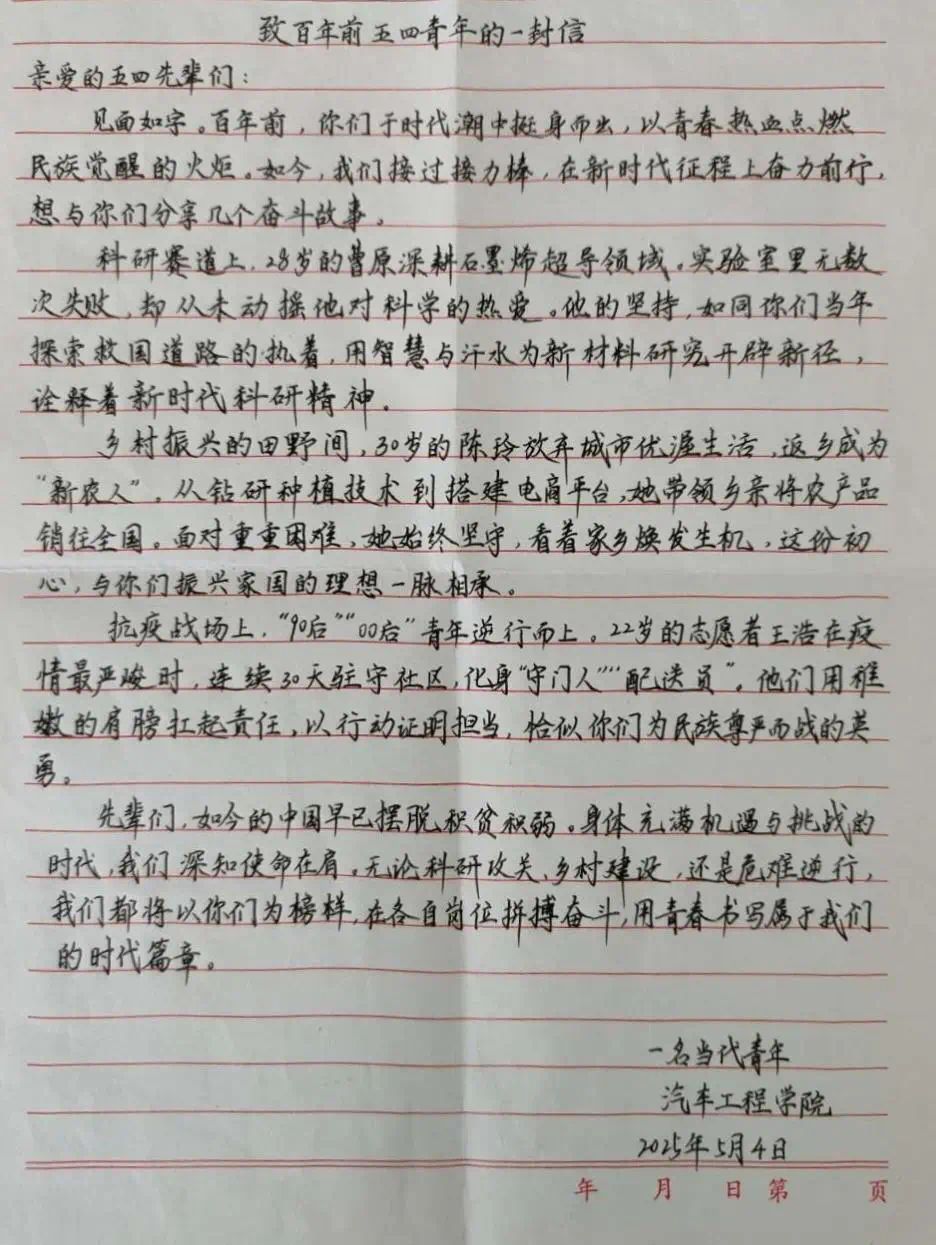 致百年前五四青年的一封信
亲爱的五四先辈们：
见面如字。百年前，你们于时代潮中挺身而出，以青春热血点燃
民族觉醒的火炬。如今，我们接过接力棒，在新时代征程上奋力前行，
想与你们分享几个奋斗故事。
科研赛道上，28岁的曹原深耕石墨烯超导领域。实验室里无数
次失败，却从未动摇他对科学的热爱。他的坚持，如同你们当年
探索救国道路的执着，用智慧与汗水为新材料研究开辟新径，
诠释着新时代科研精神.
乡村振兴的田野间，30岁的陈玲放弃城市优渥生活，返乡成为
“新农人”。从钻研种植技术到搭建电商平台，她带领乡亲将农产品
销往全国。面对重重困难，她始终坚守，看着家乡焕发生机，这份初
心，与你们振兴家国的理想一脉相承。
抗疫战场上，“90后”“00后”青年逆行而上。22岁的志愿者王浩在疫
情最严峻时，连续30天驻守社区，化身“守门人”“配送员”。他们用稚
嫩的肩膀扛起责任，以行动证明担当，恰似你们为民族尊严而战的英
勇。
先辈们，如今的中国早已摆脱积贫积弱。身体充满机遇与挑战的
时代，我们深知使命在肩。无论科研攻关、乡村建设，还是危难逆行，
我们都将以你们为榜样，在各自岗位拼搏奋斗，用青春书写属于我们
的时代篇章。
一名当代青年
汽车工程学院
2025年5月4日
年 月 日 第 页